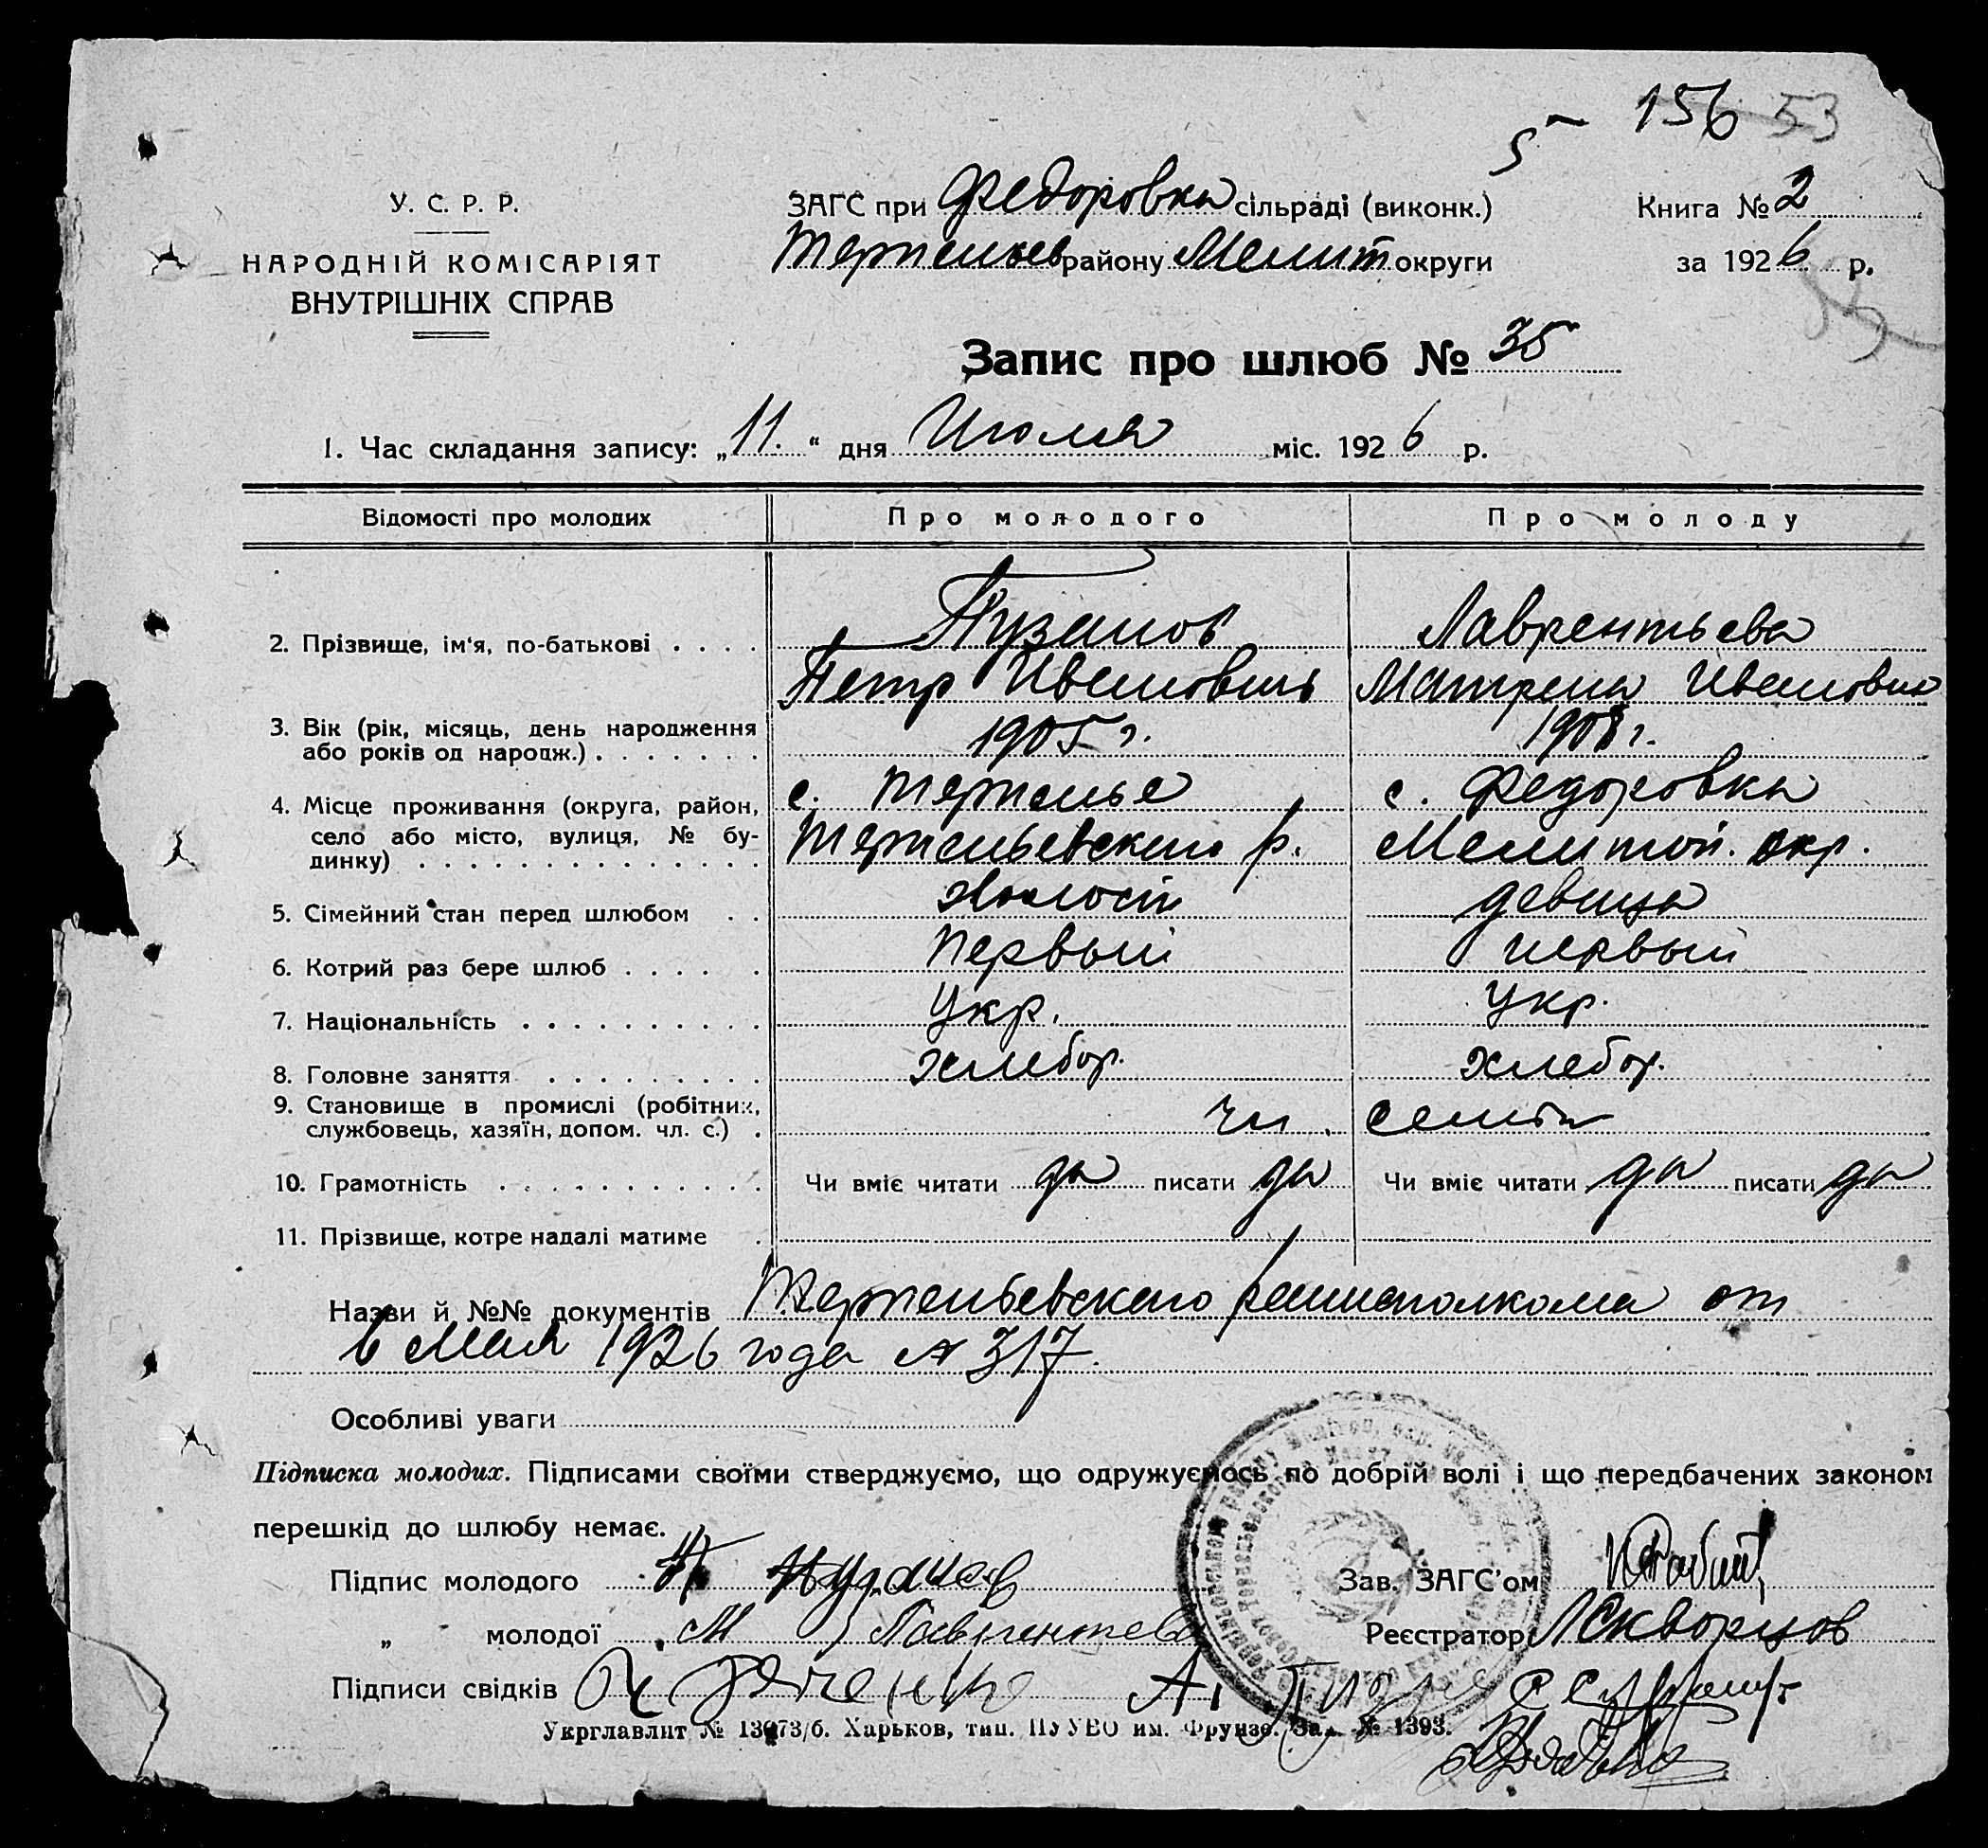 156 53
5
У. С. Р. Р.
НАРОДНІЙ КОМІСАРІЯТ
ВНУТРІШНІХ СПРАВ
ЗАГС при Федоровка сільраді (виконк.)
Терпеньев району Мелит округи
Книга № 2
за 1926 р.
Запис про шлюб № 35
1. Час складання запису: „11.“ дня Июля міс. 1926 р.
Відомості про молодих Про молодого Про молоду
2. Прізвище, ім'я, по-батькові . . . . Пузанов Лаврентьева
Петр Иванович Матрена Ивановна
3. Вік (рік, місяць, день народження
або років од народж.) . . . . . . . 1905 г. 1908 г.
4. Місце проживання (округа, район,
село або місто, вулиця, № бу-
динку) . . . . . . . . . . . . . .
с. Терпенье с. Федоровка
Терпеньевского р. Мелитоп. окр.
5. Сімейний стан перед шлюбом . . Холост девица
6. Котрий раз бере шлюб . . . . . Первый первый
7. Національність . . . . . . . . . . Укр. Укр.
8. Головне заняття . . . . . . . . . хлебор. хлебор.
9. Становище в промислі (робітник,
службовець, хазяїн, допом. чл. с.) . чл. семьи
10. Грамотність . . . . . . . . . . . Чи вміє читати да писати да Чи вміє читати да писати да
11. Прізвище, котре надалі матиме .
Назви й №№ документів Терпеньевского райисполкома от
6 Мая 1926 года № 317.
Особливі уваги
Підписка молодих. Підписами своїми стверджуємо, що одружуємось по добрій волі і що передбачених законом
перешкід до шлюбу немає.
Підпис молодого П Пузанов Зав. ЗАГС'ом
„ молодої М Лаврентева Реєстратор Скворцов
Підписи свідків
Укрглавлит № 13073/б. Харьков, тип. ПУУВО им. Фрунзе. Зак. № 1393.